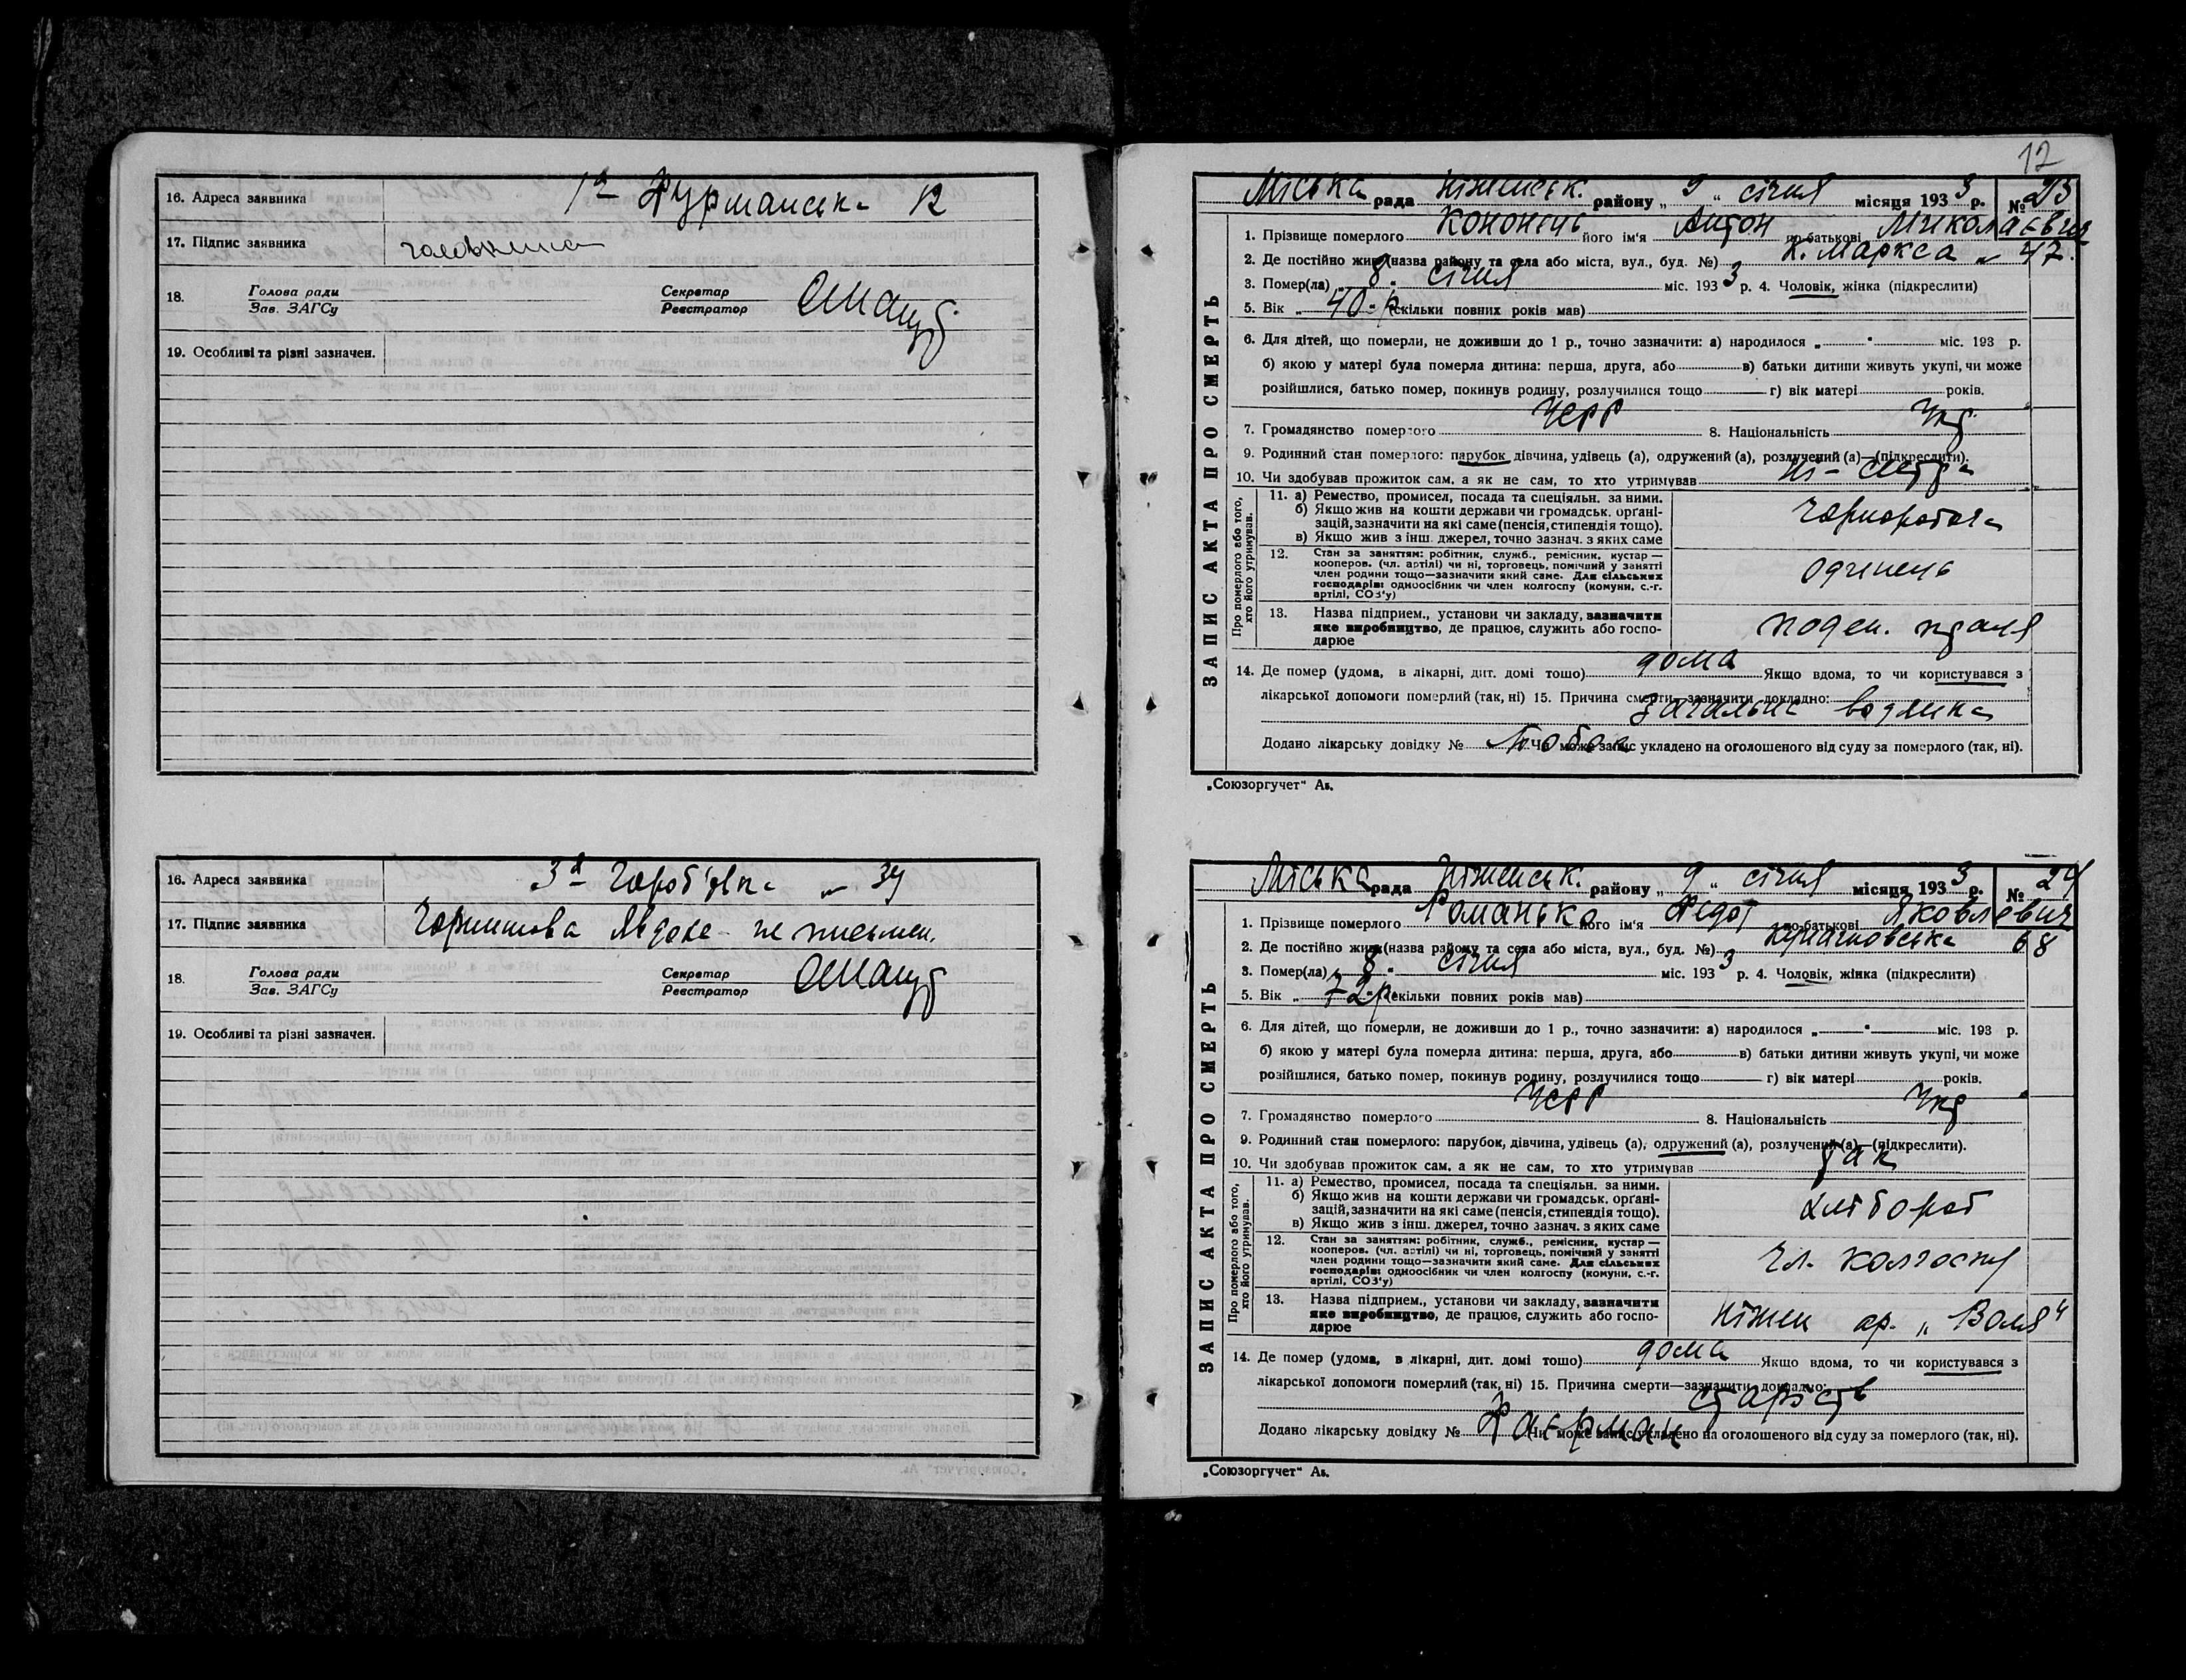 16. Адреса заявника 1а Фурманська 12
17. Підпис заявника
18. Голова ради Зав. ЗАГСу Секретар Реєстратор
19. Особливі та різні зазначен.
16. Адреса заявника 3я 34
17. Підпис заявника Явдоха не письмен.
18. Голова ради Зав. ЗАГСу Секретар Реєстратор
19. Особливі та різні зазначен.
12
ЗАПИС АКТА ПРО СМЕРТЬ
Міська рада Ніженськ. району „ 9 " січня місяця 1933 р. № 23
1. Прізвище померлого Кононець його ім'я Антон по батькові Миколаєвич
2. Де постійно жив (назва району та села або міста, вул., буд. №) К. Маркса 47.
3. Помер(ла) „ 8 " січня міс. 1933 р. 4. Чоловік, жінка (підкреслити)
5. Вік „ 40 " р. (скільки повних років мав)
6. Для дітей, що померли, не доживши до 1 р., точно зазначити: а) народилося „ " міс. 193 р.
б) якою у матері була померла дитина: перша, друга, або в) батьки дитини живуть укупі, чи може
розійшлися, батько помер, покинув родину, розлучилися тощо г) вік матері років.
7. Громадянство померлого УСРР 8. Національність Укр
9. Родинний стан померлого: парубок дівчина, удівець (а), одружений (а), розлучений (а)—(підкреслити).
10. Чи здобував прожиток сам, а як не сам, то хто утримував ні – сестра
Про померлого або того, хто його утримував.
11. а) Ремество, промисел, посада та спеціяльн. за ними.
б) Якщо жив на кошти держави чи громадськ. орґані-
зацій, зазначити на які саме (пенсія, стипендія тощо).
в) Якщо жив з інш. джерел, точно зазнач. з яких саме
чорнороб
12. Стан за заняттям: робітник, служб., ремісник, кустар —
кооперов. (чл. артілі) чи ні, торговець, помічний у занятті
член родини тощо—зазначити який саме. Для сільських
господарів: одноосібник чи член колгоспу (комуни, с.-г.
артілі, СОЗ'у)
одинець
13. Назва підприєм., установи чи закладу, зазначити
яке виробництво, де працює, служить або госпо-
дарює
поден. праця
14. Де помер (удома, в лікарні, дит. домі тощо) дома Якщо вдома, то чи користувався з
лікарської допомоги померлий (так, ні) 15. Причина смерти—зазначити докладно:
загальна водянка
Додано лікарську довідку № Чи може запис укладено на оголошеного від суду за померлого (так, ні).
„Союзоргучет" Аз.
ЗАПИС АКТА ПРО СМЕРТЬ
Міська рада Ніженськ. району „ 9 " січня місяця 1933 р. № 24
1. Прізвище померлого Романько його ім'я Федот по батькові Яковлевич
2. Де постійно жив (назва району та села або міста, вул., буд. №) 68
3. Помер(ла) „ 8 " січня міс. 1933 р. 4. Чоловік, жінка (підкреслити)
5. Вік „ 72 " р. (скільки повних років мав)
6. Для дітей, що померли, не доживши до 1 р., точно зазначити: а) народилося „ " міс. 193 р.
б) якою у матері була померла дитина: перша, друга, або в) батьки дитини живуть укупі, чи може
розійшлися, батько помер, покинув родину, розлучилися тощо г) вік матері років.
7. Громадянство померлого УСРР 8. Національність Укр
9. Родинний стан померлого: парубок, дівчина, удівець (а), одружений (а), розлучений (а)—(підкреслити).
10. Чи здобував прожиток сам, а як не сам, то хто утримував так
Про померлого або того, хто його утримував.
11. а) Ремество, промисел, посада та спеціяльн. за ними.
б) Якщо жив на кошти держави чи громадськ. орґані-
зацій, зазначити на які саме (пенсія, стипендія тощо).
в) Якщо жив з інш. джерел, точно зазнач. з яких саме
хлібороб
12. Стан за заняттям: робітник, служб., ремісник, кустар —
кооперов. (чл. артілі) чи ні, торговець, помічний у занятті
член родини тощо—зазначити який саме. Для сільських
господарів: одноосібник чи член колгоспу (комуни, с.-г.
артілі, СОЗ'у)
чл. колгоспу
13. Назва підприєм., установи чи закладу, зазначити
яке виробництво, де працює, служить або госпо-
дарює
Ніжен ар. „Воля"
14. Де помер (удома, в лікарні, дит. домі тощо) дома Якщо вдома, то чи користувався з
лікарської допомоги померлий (так, ні) 15. Причина смерти—зазначити докладно:
старість
Додано лікарську довідку № Фаєрман Чи може запис укладено на оголошеного від суду за померлого (так, ні).
„Союзоргучет" Аз.